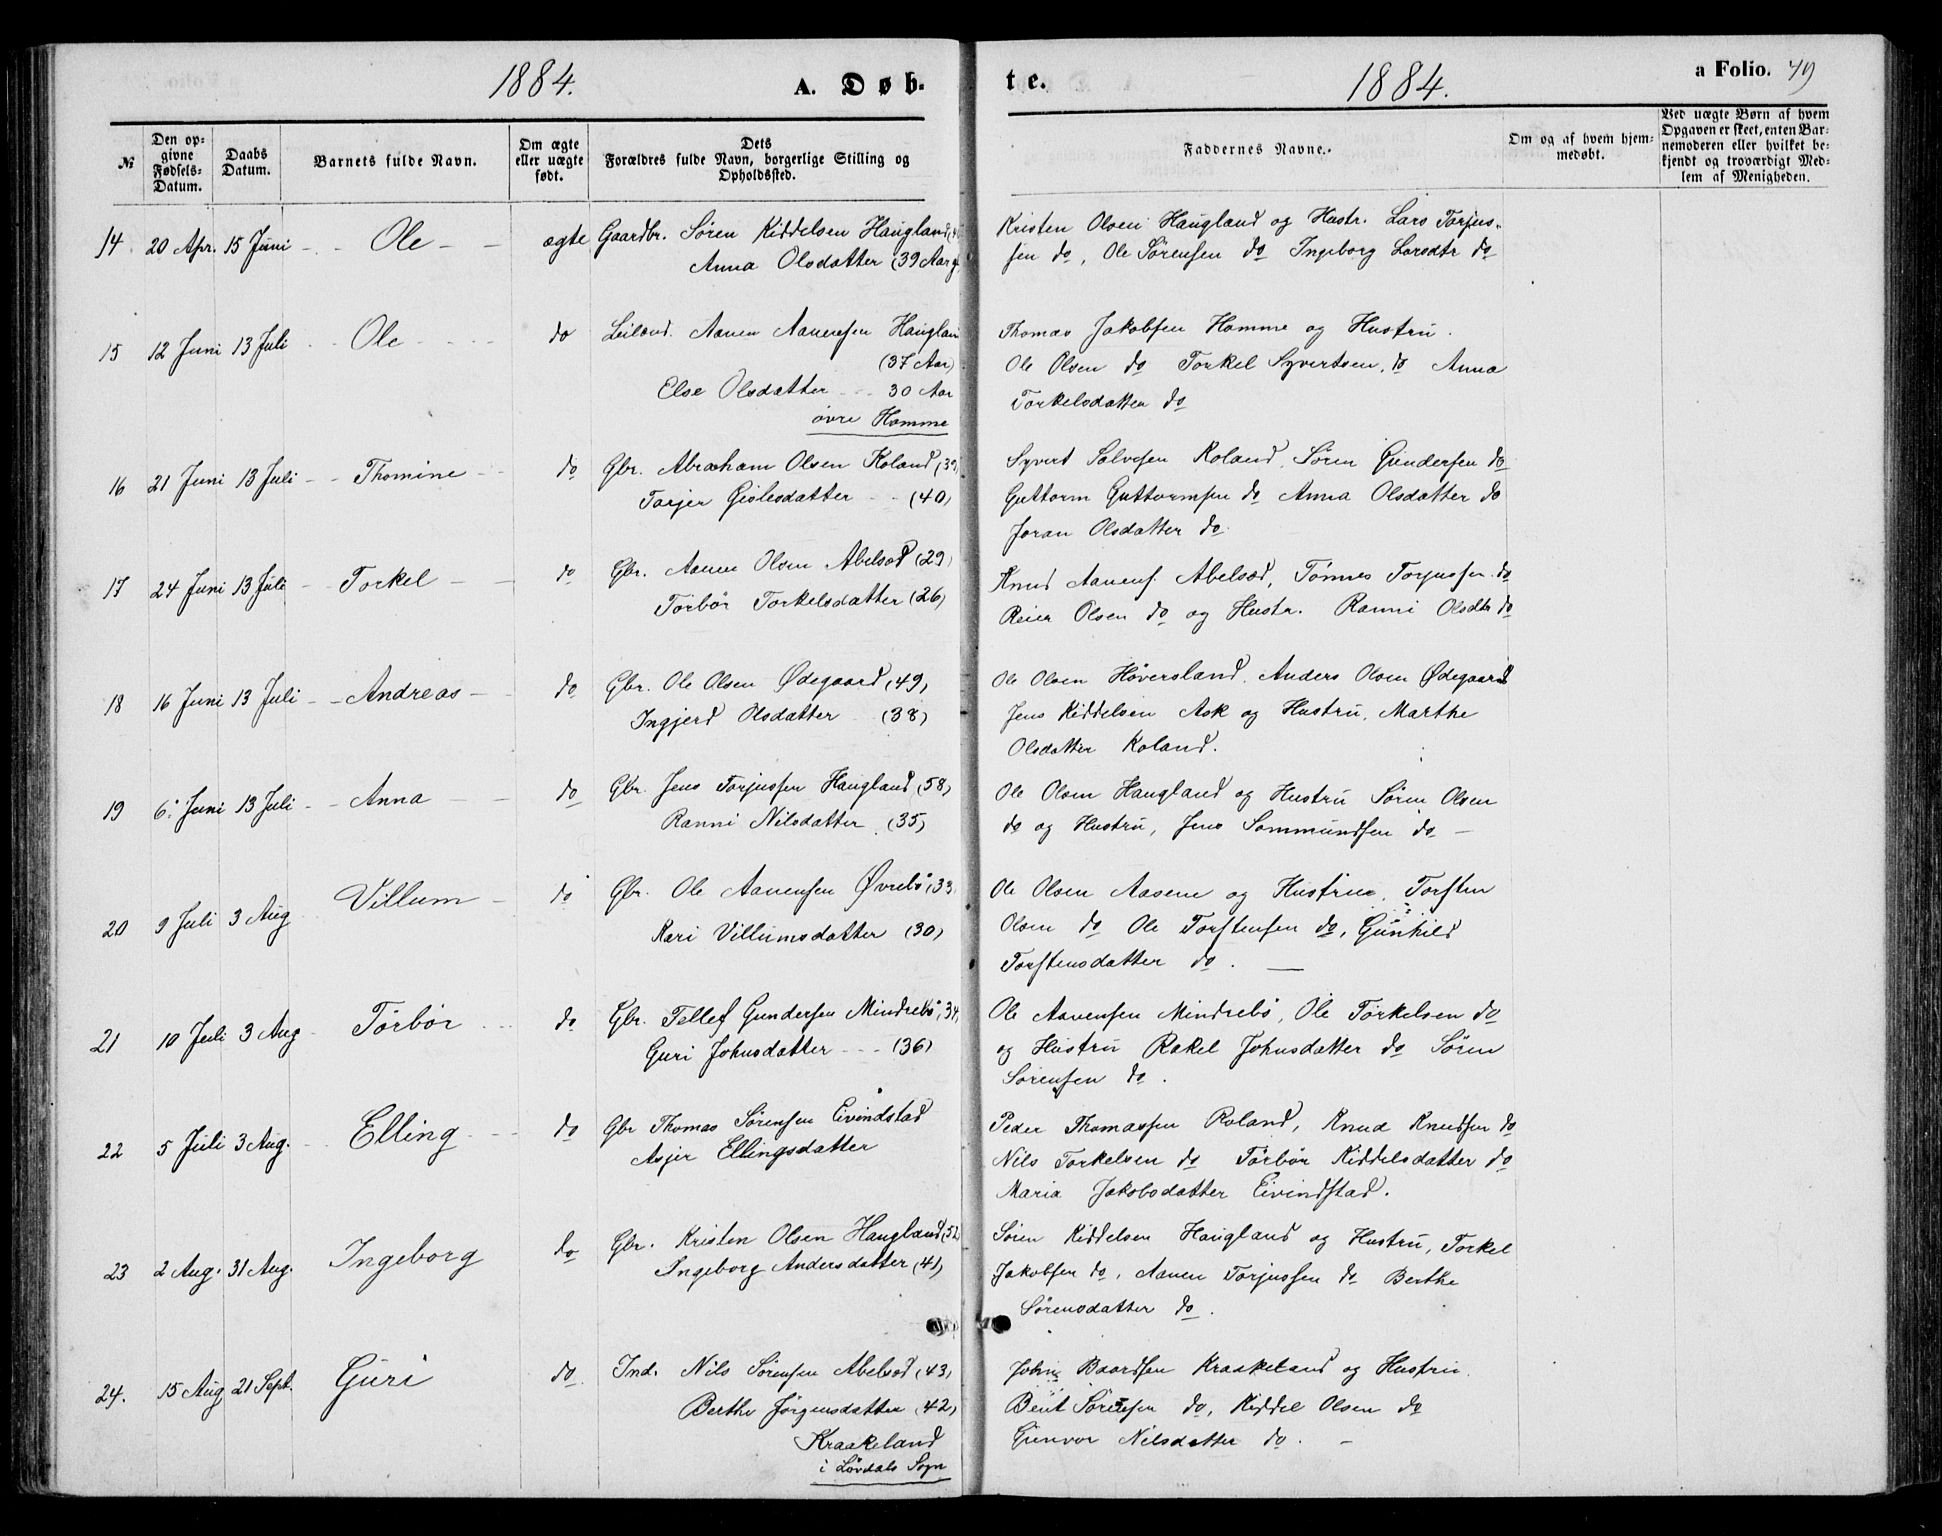 1884. A. Døb-
№ Den opgivne Fødsels-Datum. Daabs Datum. Barnets fulde Navn. Om ægte eller uægte født. Dets Forældres fulde Navn, borgerlige Stilling og Opholdssted.
14 20 Apr. 15 Juni Ole ægte Gaardbr. Sören Kiddelsen Haugland
Anna Olsdatter (39 Aar g.
15 12 Juni 13 Juli Ole do Leilænd. Aanen Aanensen Haugland
(37 Aar)
Else Olsdatter 30 Aar
övre Homme
16 21 Juni 13 Juli Thomine do Gbr. Abraham Olsen Roland (39)
Tarjer Gislesdatter (40)
17 24 Juni 13 Juli Torkel do Gbr. Aanen Olsen Abelsæd (29)
Torbör Torkelsdatter (26)
18 16 Juni 13 Juli Andreas do Gbr. Ole Olsen Ødegaard (49)
Ingjerd Olsdatter (38)
19 6. Juni 13 Juli Anna do Gbr. Jens Torjussen Haugland (58)
Ranni Nilsdatter (35)
20 9 Juli 3 Aug Villum do Gbr. Ole Aanensen Øvrebö (33
Kari Villumsdatter (30)
21 10 Juli 3 Aug Törbör do Gbr. Tellef Gundersen Mindrebö, 34
Guri Johnsdatter (36)
22 5 Juli 3 Aug. Elling do Gbr Thomas Sörensen Eivindstad
Asjer Ellingsdatter
23 2 Aug. 31 Aug. Ingeborg do Gbr. Kristen Olsen Haugland (52
Ingeborg Andersdatter (41)
24. 15 Aug 21 Sept. Guri do Ind. Nils Sörensen Abelsæd (43)
Berthe Jörgensdatter (42)
Kraakeland
i Lövdals Sogn
te. 1884. a Folio. 79
Faddernes Navne. Om og af hvem hjemmedøbt. Ved uægte Børn af hvem Opgaven er skeet, enten Barnemoderen eller hvilket bekjendt og troværdigt Medlem af Menigheden.
Kristen Olsen Haugland og Hustr. Lars Torjus-
sen do, Ole Sörensen do Ingeborg Larsdtr do
Thomas Jakobsen Homme og Hustru.
Ole Olsen do Torkel Syvertsen, do Anna
Torkelsdatter do
Syvert Salvesen Roland, Sören Gundersen do
Guttorm Guttormsen do Anna Olsdatter do
Joran Olsdatter do.
Knud Aanens. Abelsæd, Tönnes Torjussen do
Reier Olsen do og Hustr. Ranni Olsdtr do
Ole Olsen Höversland, Anders Olsen Ødegaard
Jens Kiddelsen Ask og Hustru, Marthe
Olsdatter Roland.
Ole Olsen Haugland og Hustru Sören Olsen
do og Hustru, Jens Sommundsen do –
Ole Olsen Aasene og Hustrue, Torsten
Olsen do Ole Torstensen do, Gunhild
Torstensdatter do. —
Ole Aanensen Mindrebö, Ole Törkelsen do
og Hustru Rakel Johnsdatter do Sören
Sörensen do.
Peder Thomassen Roland, Knud Knudsen do
Nils Torkelsen do Törbör Kiddelsdatter do
Maria Jakobsdatter Eivindstad.
Sören Kiddelsen Haugland og Hustru, Torkel
Jakobsen do, Aanen Torjussen do Berthe
Sörensdatter do.
John Baardsen Kraakeland og Hustru.
Bent Sörensen do, Kiddel Olsen do
Gunvor Nilsdatter do. –